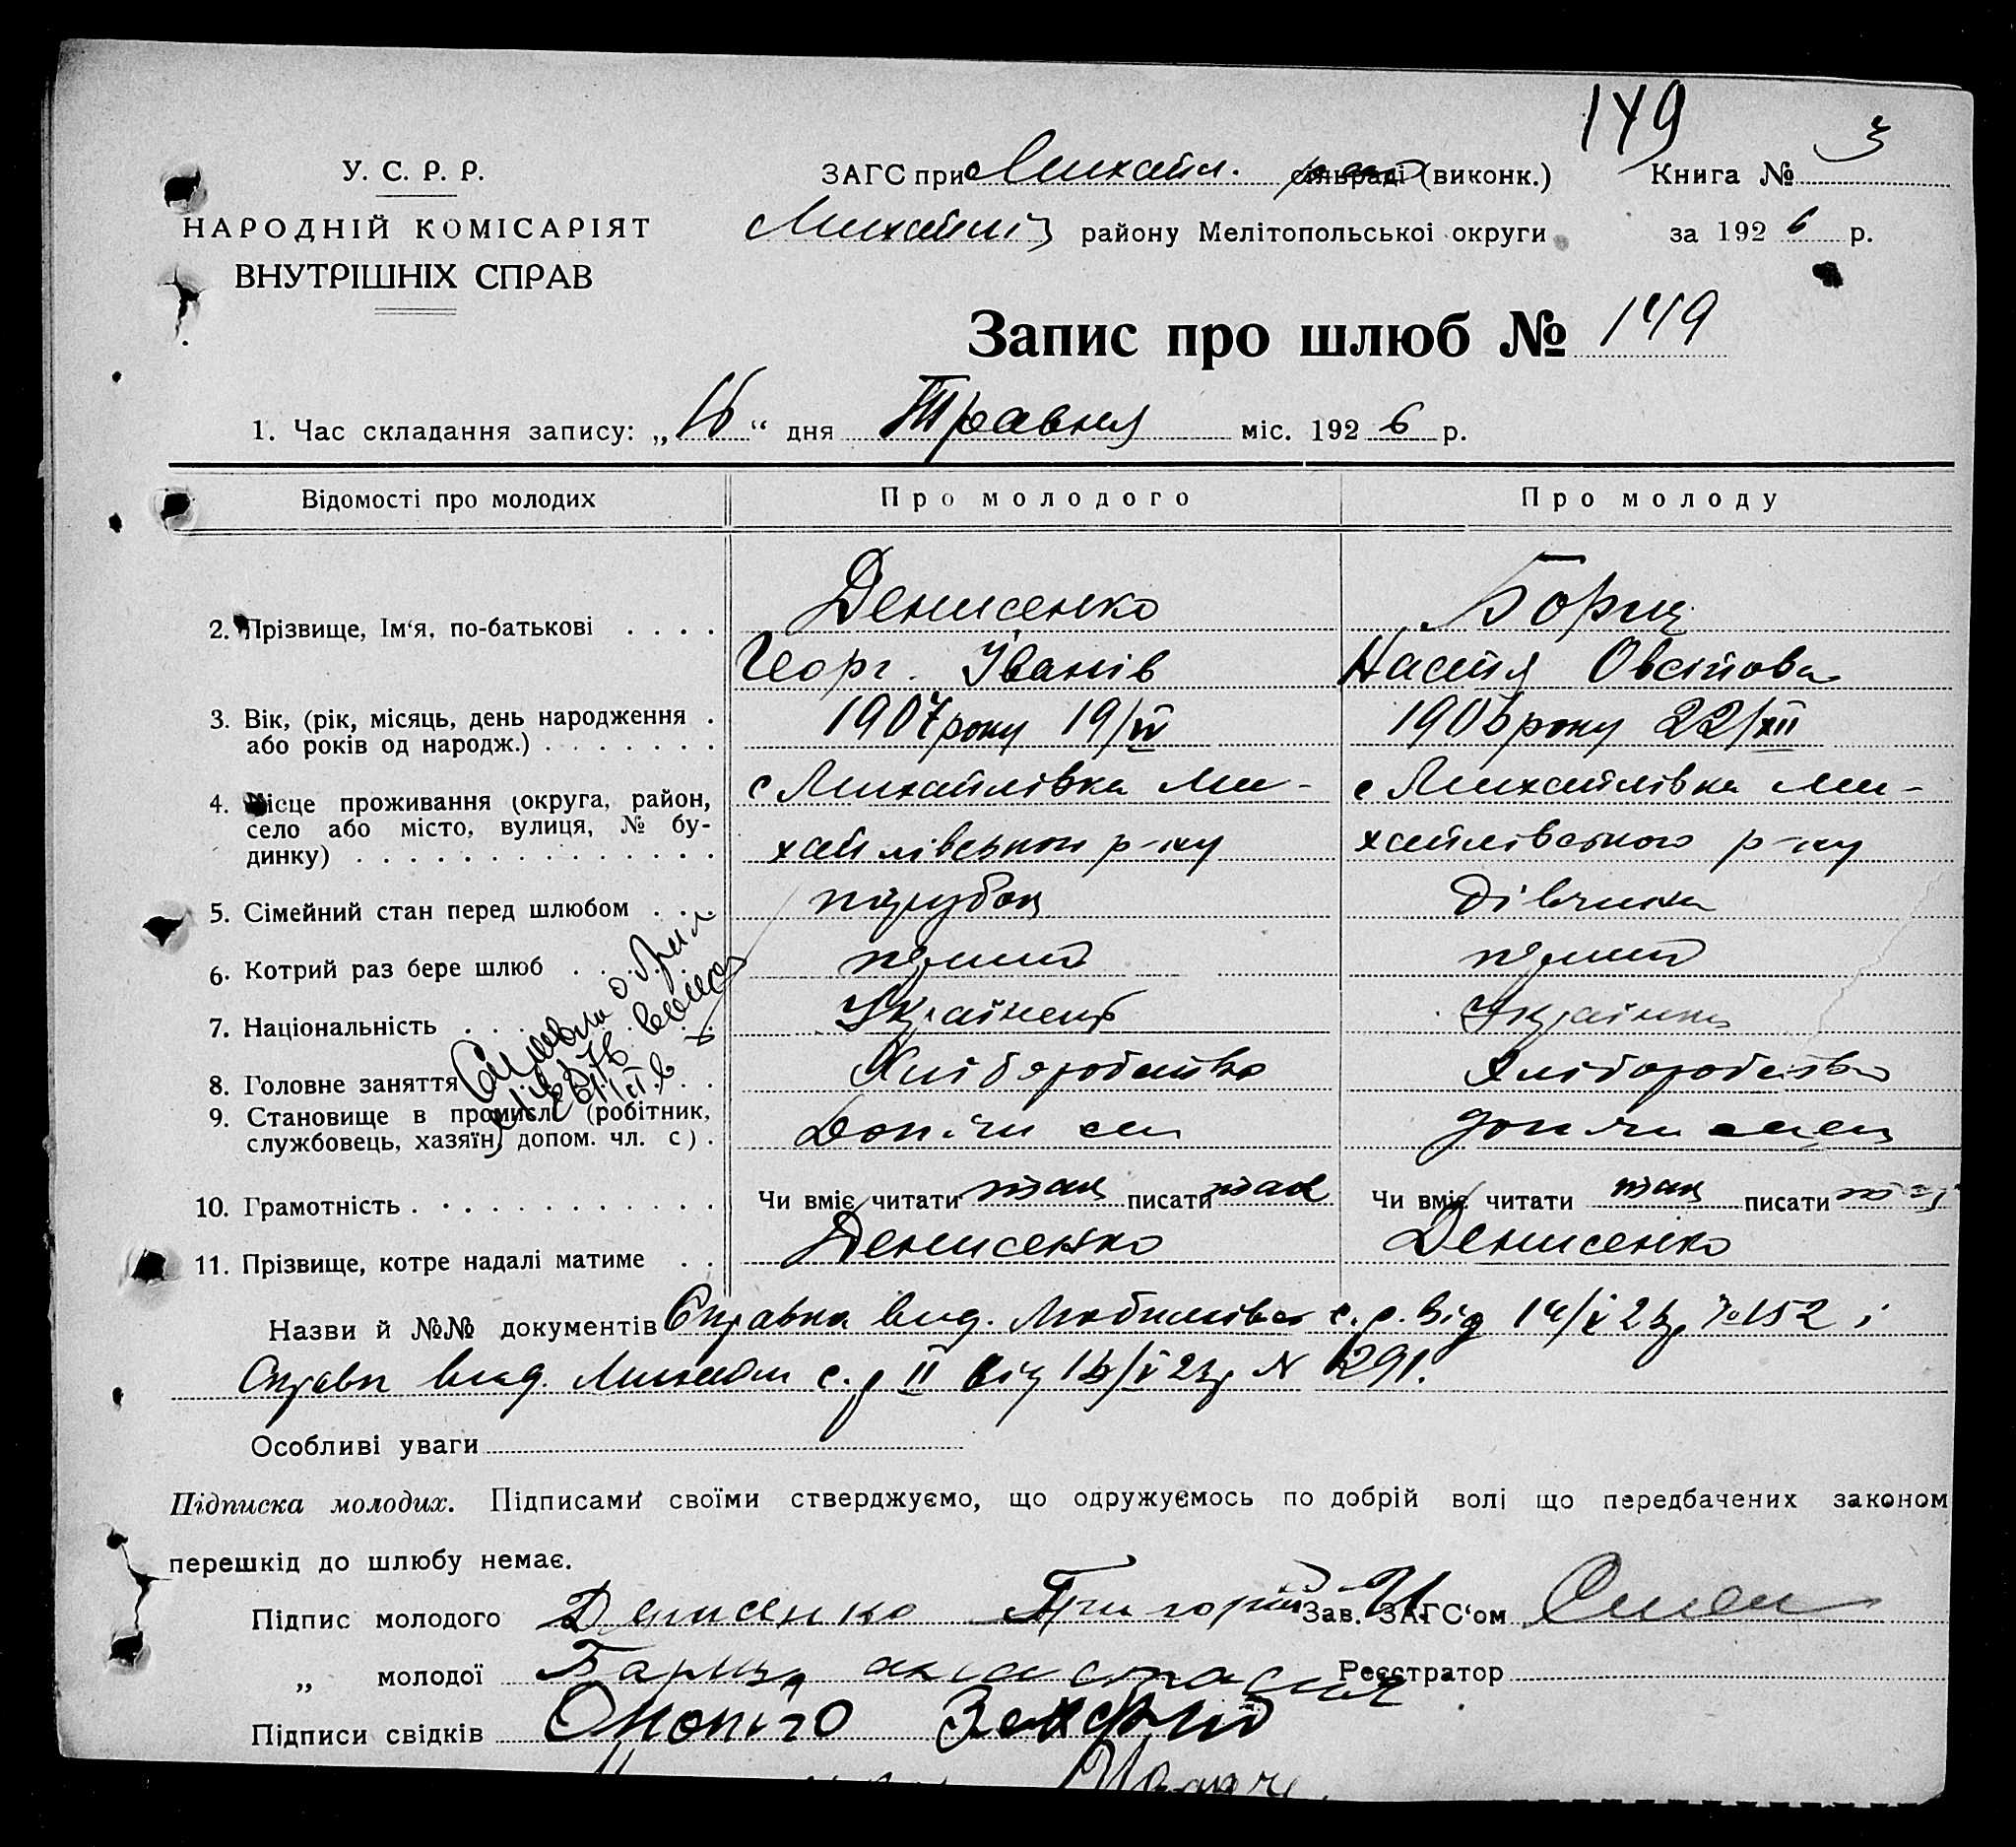 149
У. С. Р. Р.
НАРОДНІЙ КОМІСАРІЯТ
ВНУТРІШНІХ СПРАВ
ЗАГС при Михайл. сільраді (виконк.) Книга № 3
Михайлів району Мелітопольської округи за 1926 р.
Запис про шлюб № 149
1. Час складання запису: „ “ дня Травня міс. 1926 р.
Відомості про молодих Про молодого Про молоду
2. Прізвище, Ім'я, по-батькові . . . . Денисенко Борщ
Георг. Іванів Настя Овсіїова
3. Вік, (рік, місяць, день народження . або років од народж.) . . . . . . . 1907 року 19/IV 1906 року 22/XII
4. Місце проживання (округа, район, с Михайлівка Ми- с Михайлівка Ми-
село або місто, вулиця, № бу-
динку) . . . . . . . . . . . . . . хайлівського р-ну хайлівського р-ну
5. Сімейний стан перед шлюбом . . . парубок дівчина
6. Котрий раз бере шлюб . . . перший перший
7. Національність . . . Українець Українка
8. Головне заняття . . Хліборобство Хліборобство
9. Становище в промислі (робітник,
службовець, хазяїн, допом. чл. с) .
10. Грамотність . . . . . . . . . . . . Чи вміє читати так писати так Чи вміє читати так писати так
11. Прізвище, котре надалі матиме . . Денисенко Денисенко
Назви й №№ документів Справка вид. Любимівсь с. р. від 14/V 26 р № 152 і
Справк вид. Михайл с. р II від V 26 р N 1291.
Особливі уваги
Підписка молодих. Підписами своїми стверджуємо, що одружуємось по добрій волі що передбачених законом
перешкід до шлюбу немає.
Підпис молодого Денисенко Григорій И Зав. ЗАГС'ом
„ молодої Барищ анастасия Реєстратор
Підписи свідків